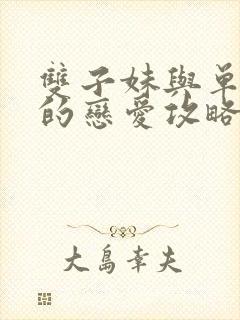 雙子妹與單
的戀愛攻略
大島幸夫